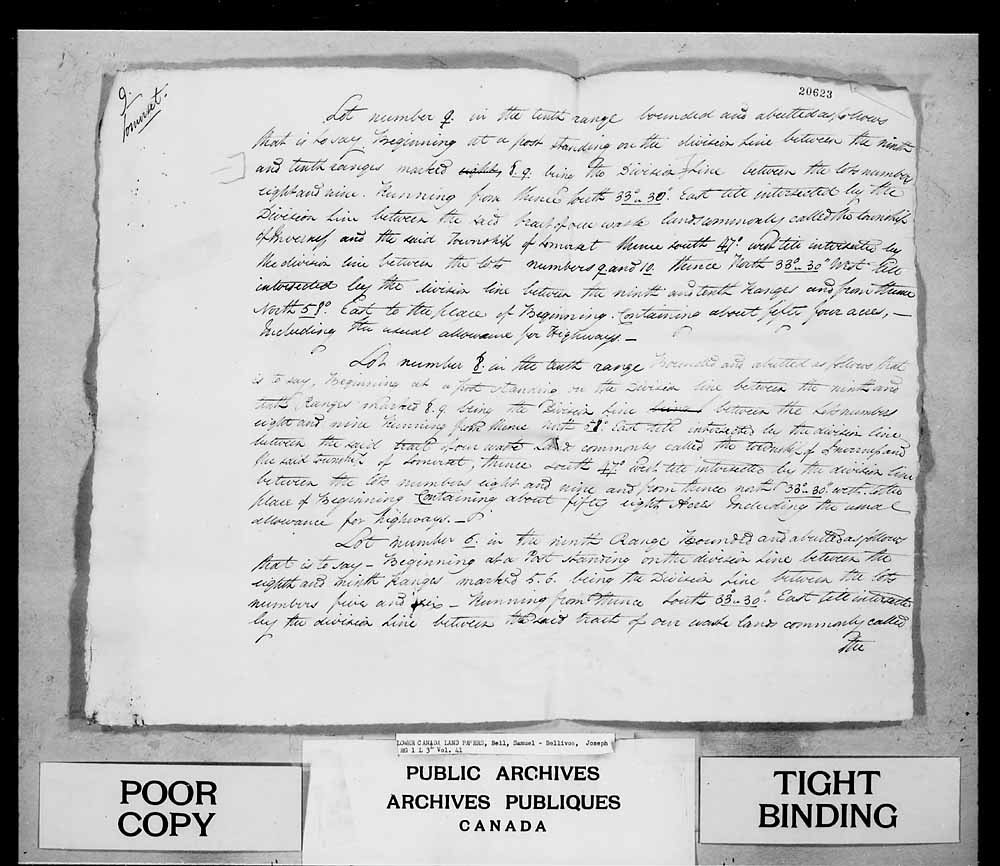 20623
9.
Somerset.
Lot number 9. in the tenth range bounded and abutted as follows
that is to say, Beginning at a post standing on the division line between the ninth
and tenth ranges marked 8.9. being the Division Line between the lots number
eight and nine. Running from thence South 33°..30'. East till intersected by the
Division Line between the said tract of our waste lands commonly called the township
of Inverness and the said Township of Somerset thence South 47° west till intersected by
the division line between the lots numbers 9 and 10. thence North 33°..30' West till
intersected by the division line between the ninth and tenth Ranges and from thence
North 58° East to the place of Beginning. Containing about fifty four acres, —
Including the usual allowance for Highways. —
Lot number 8. in the tenth range Bounded and abutted as follows, that
is to say, Beginning at a post standing on the Division line between the ninth and
tenth Ranges marked 8.9. being the Division Line between the Lots numbers
eight and nine Running from thence north 58° East till intersected by the division line
between the said tract of our waste Land commonly called the township of Inverness and
the said township of Somerset, thence South 47° West till intersected by the division line
between the lots numbers eight and nine and from thence north 33°..30' west to the
place of Beginning Containing about fifty eight Acres Including the usual
allowance for highways. —
Lot number 6. in the ninth Range Bounded and abutted as follows
that is to say — Beginning at a Post standing on the division Line between the
eighth and ninth Ranges marked 5.6. being the Division Line between the lots
numbers five and six — Running from thence South 33°..30'. East till intersected
by the division Line between the said tract of our waste lands commonly called
the
LOWER CANADA LAND PAPERS, Bell, Samuel - Bellivoo, Joseph
RG 1 L 3ᴸ Vol. 41
POOR
COPY
PUBLIC ARCHIVES
ARCHIVES PUBLIQUES
CANADA
TIGHT
BINDING